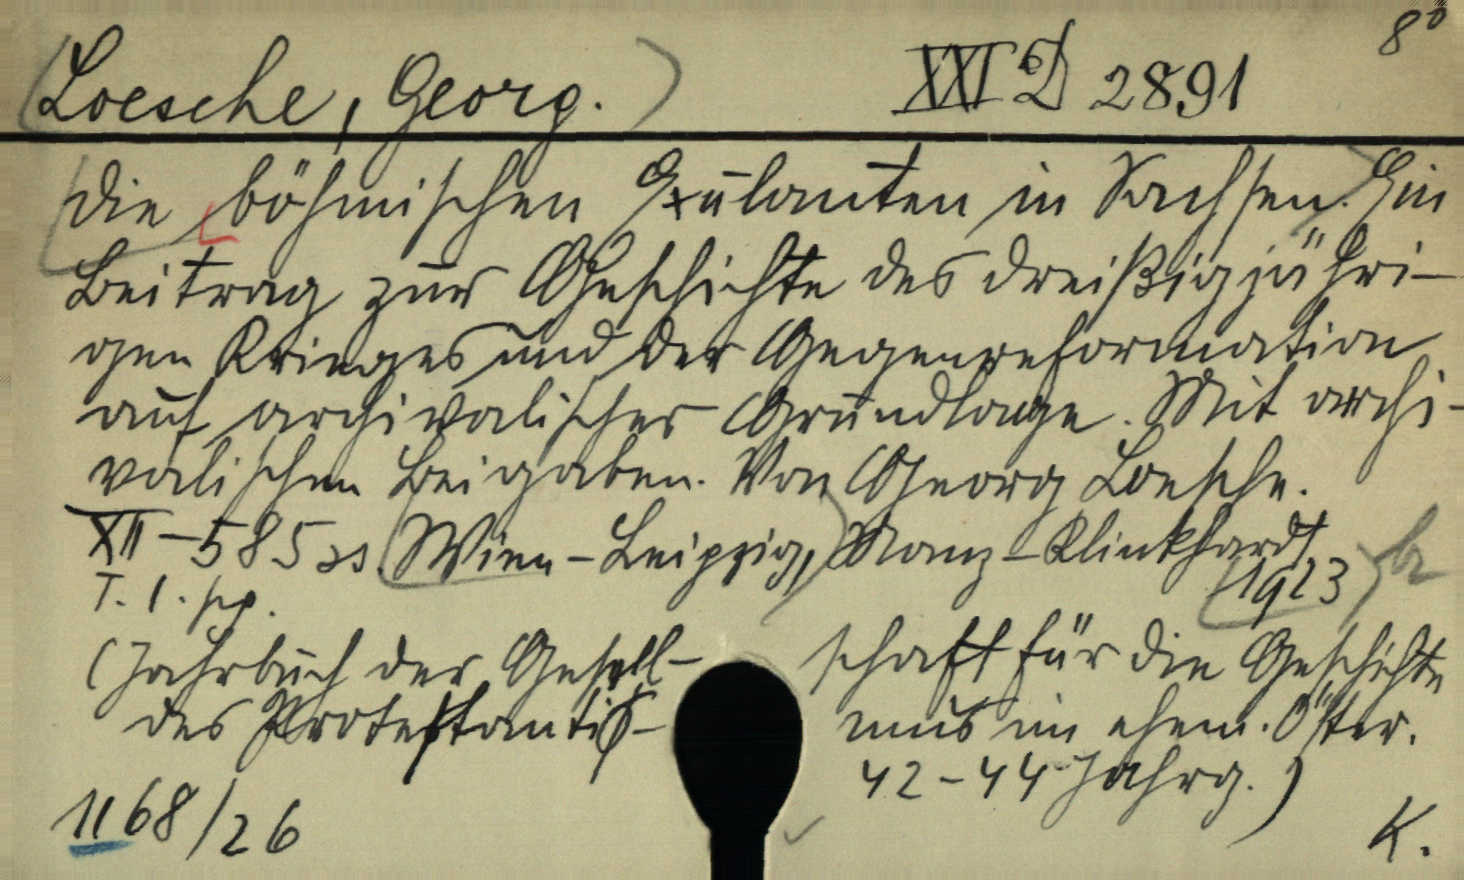 8°
Loesche, Georg. XXI D 2891
Die böhmischen Exulanten in Sachsen. Ein
Beitrag zur Geschichte des dreißigjähri-
gen Krieges und der Gegenreformation
auf archivalischer Grundlage. Mit archi-
valischen Beigaben. Von Georg Loesche.
XII-585 ss. Wien-Leipzig, Manz-Klinkhardt,
1923
T. 1. pp.
(Jahrbuch der Gesell- schaft für die Geschichte
des Protestantis- mus im ehem. Öster.
42-44 Jahrg.)
1168/26
K.